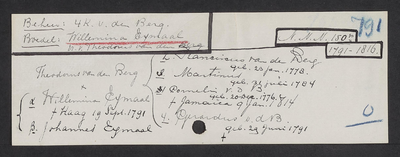 Beheer: 4 K. v. den Berg.
Boedel: Willemina Eymaal
w. v. Theodorus van den Berg
N.N.N. 150
791
1791-1816
Theodorus van den Berg
&
a Willemina Eymaal
† Haag 19 Sept. 1791
B. Johannes Eymaal
1. Franciscus van de Berg
geb. 23 jan. 1773.
2. Martinus
geb. 31 juli 1784
3. Cornelis v. d. B.
geb. 20 Dec. 1776
† Jamaica 9 jan. 1814
4. Gerardus v. d. B.
geb. 23 Juni 1791
†
0